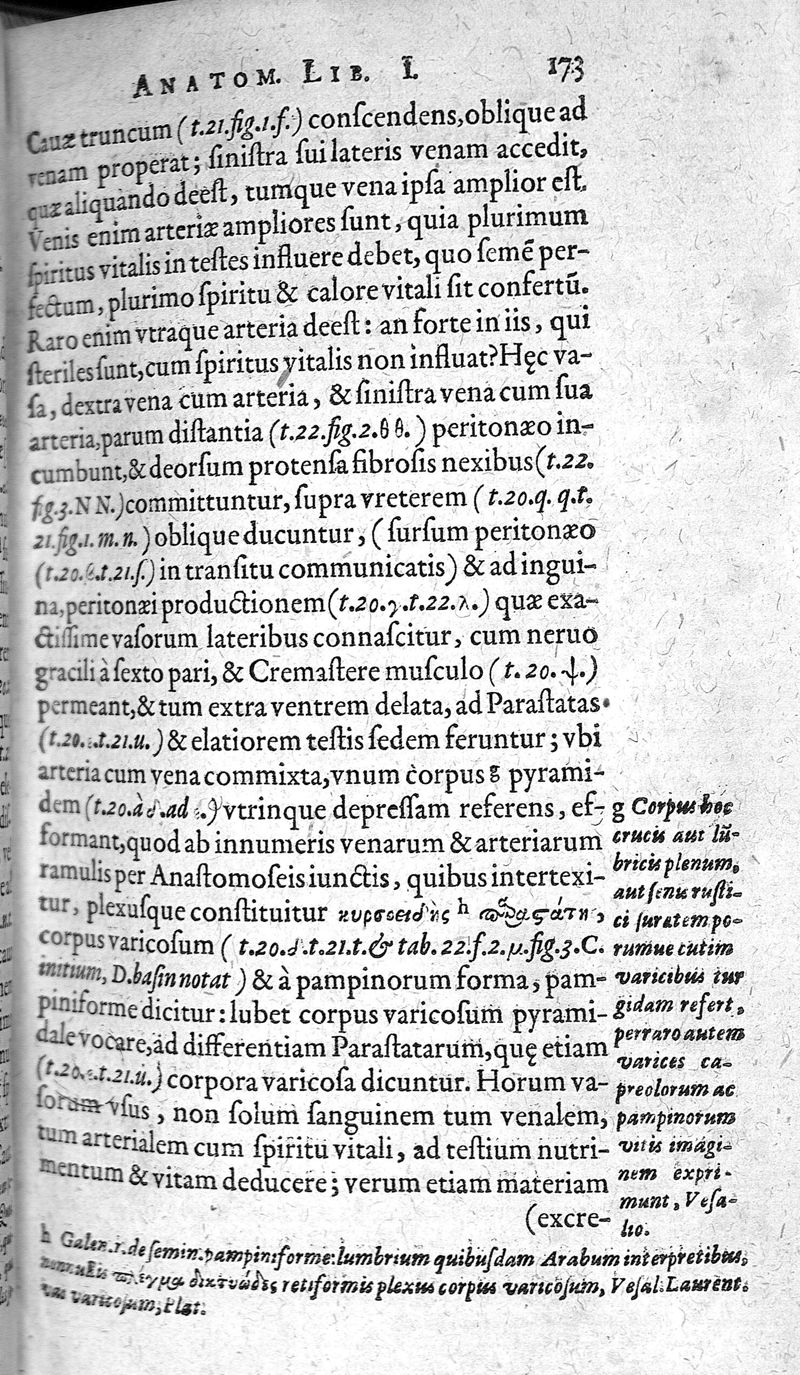 ANATOM. LIB. I. 173
Cauæ truncum (t.21.fig.1.f.) conſcendens, oblique ad
venam properat; ſiniſtra ſui lateris venam accedit,
quæ aliquando deeſt, tumque vena ipſa amplior eſt.
Venis enim arteriæ ampliores ſunt, quia plurimum
ſpiritus vitalis in teſtes influere debet, quo ſemē per-
fectum, plurimo ſpiritu & calore vitali ſit confertū.
Raro enim vtraque arteria deeſt: an forte in iis, qui
ſteriles ſunt, cum ſpiritus vitalis non influat? Hęc va-
ſa, dextra vena cum arteria, & ſiniſtra vena cum ſua
arteria, parum diſtantia (t.22.fig.2.θ θ.) peritonæo in-
cumbunt, & deorſum protenſa fibroſis nexibus (t.22.
fig.3.N N.) committuntur, ſupra vreterem (t.20.q. q.t.
21.fig.1.m.n.) oblique ducuntur, (ſurſum peritonæo
(t.20. t.21.ſ.) in tranſitu communicatis) & ad ingui-
na, peritonæi productionem (t.20.γ.t.22.λ.) quæ exa-
ctiſſime vaſorum lateribus connaſcitur, cum neruo
gracili à ſexto pari, & Cremaſtere muſculo (t.20.ψ.)
permeant, & tum extra ventrem delata, ad Paraſtatas
(t.20. t.21.u.) & elatiorem teſtis ſedem feruntur; vbi
arteria cum vena commixta, vnum corpus g pyrami-
dem (t.20.à δ.ad .) vtrinque depreſſam referens, ef-
formant, quod ab innumeris venarum & arteriarum
ramulis per Anaſtomoſeis iunctis, quibus intertexi-
tur, plexuſque conſtituitur κυρσοειδὴς h παραστάτης,
corpus varicoſum (t.20.δ.t.21.t.& tab.22.f.2.μ.fig.3.C.
initium, D.baſin notat) & à pampinorum forma, pam-
piniforme dicitur: lubet corpus varicoſum pyrami-
dale vocare, ad differentiam Paraſtatarum, quę etiam
(t.20. t.21.u.) corpora varicoſa dicuntur. Horum va-
ſorum vſus, non ſolum ſanguinem tum venalem,
tum arterialem cum ſpiritu vitali, ad teſtium nutri-
mentum & vitam deducere; verum etiam materiam
(excre-
g Corpus hoc
crucis aut lū-
bricis plenum,
aut ſenis ruſti-
ci ſuratempo-
rumue cutim
varicibus tur
gidam refert,
perraro autem
varices ca-
preolorum ac
pampinorum
vitis imagi-
nem expri-
munt, Veſa-
lio.
h Galen.1.de ſemin.pampiniforme: lumbrium quibuſdam Arabum interpretibus,
nonnullis πλέγμα δικτυῶδες retiformis plexus corpus varicoſum, Veſal. Laurent.
vas varicoſum, Plat.